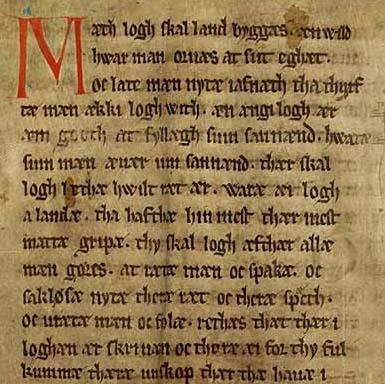 Mæth logh skal land byggæs. æn wild
hwar man oruæs at sitt eghæt.
oc late mæn nytæ iafnæth tha thyrf
tæ mæn ækki logh with. æn ængi logh ær
æm goth at fyllægh sum sannænd. hwaræ
sum mæn æuær um sannænd. thær skal
logh lethæ hwilt ræt ær. waræ æi logh
a landæ. tha hafthæ hin mest thær mest
mattæ gripæ. thy skal logh æfthær allæ
mæn gøres. at rætæ mæn oc spakæ. oc
sakløsæ nytæ theræ ræt oc theræ spech.
oc urætæ mæn oc folæ. rethæs thæt thær i
loghæn ær skriuan oc thoræ æi for thy ful
kummæ theræ unskop thær thæ hauæ i